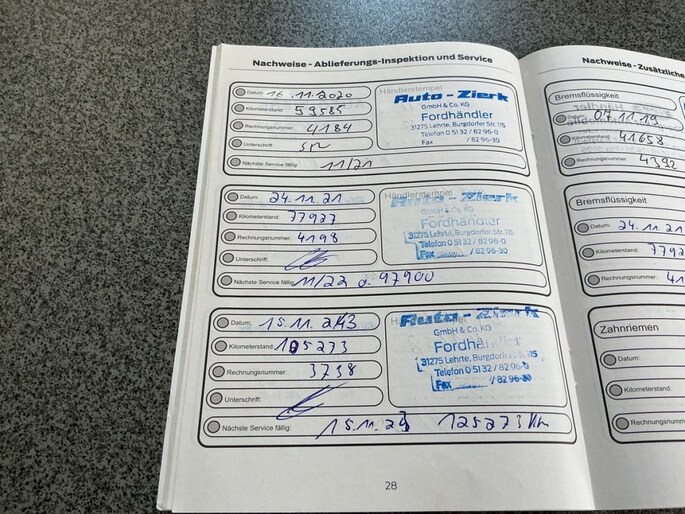 Nachweise - Ablieferungs-Inspektion und Service
Datum: 16.11.2020
Kilometerstand: 59585
Rechnungsnummer: 4184
Unterschrift:
Nächste Service fällig: 11/21
Händlerstempel
Auto-Zierk
GmbH & Co. KG
Fordhändler
31275 Lehrte, Burgdorfer Str. 115
Telefon 0 51 32 / 82 96-0
Fax / 82 96-30
Datum: 24.11.21
Kilometerstand: 77927
Rechnungsnummer: 4198
Unterschrift:
Nächste Service fällig: 11/22 o. 97900
Händlerstempel
Auto-Zierk
GmbH & Co. KG
Fordhändler
31275 Lehrte, Burgdorfer Str. 115
Telefon 0 51 32 / 82 96-0
Fax / 82 96-30
Datum: 15.11.
Kilometerstand: 105273
Rechnungsnummer: 3738
Unterschrift:
Nächste Service fällig: 15.11. 125273 Km
Auto-Zierk
GmbH & Co. KG
Fordhändler
31275 Lehrte, Burgdorfer Str. 115
Telefon 0 51 32 / 82 96-0
Fax / 82 96-30
28
Nachweise - Zusätzliche
Bremsflüssigkeit
07.11.19
Kilometerstand: 41658
Rechnungsnummer: 4392
Bremsflüssigkeit
Datum: 24.11.2
Kilometerstand: 7792
Rechnungsnummer: 41
Zahnriemen
Datum:
Kilometerstand:
Rechnungsnumm